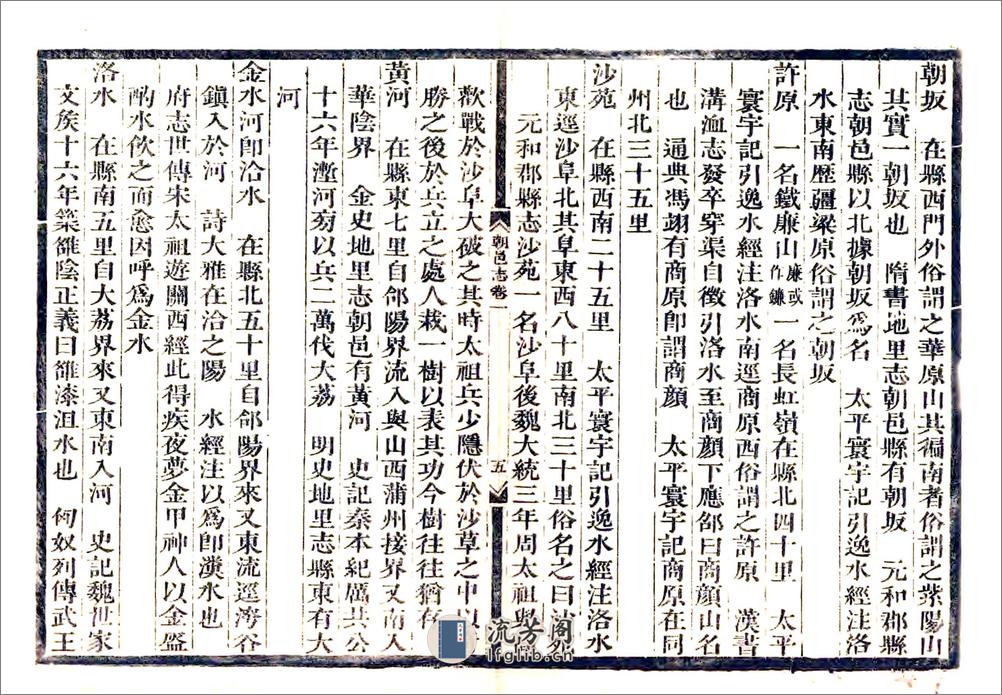 朝坂　在縣西門外俗謂之華原山其徧南者俗謂之紫陽山
其實一朝坂也　隋書地里志朝邑縣有朝坂　元和郡縣
志朝邑縣以北據朝坂爲名　太平寰宇記引逸水經注洛
水東南歷疆梁原俗謂之朝坂
許原　一名鐵廉山廉或作鐮一名長虹嶺在縣北四十里　太平
寰宇記引逸水經注洛水南逕商原西俗謂之許原　漢書
溝洫志發卒穿渠自徵引洛水至商顔下應邵曰商顔山名
也　通典馮翊有商原卽謂商顔　太平寰宇記商原在同
州北三十五里
沙苑　在縣西南二十五里　太平寰宇記引逸水經注洛水
東逕沙阜北其阜東西八十里南北三十里俗名之曰沙苑
元和郡縣志沙苑一名沙阜後魏大統三年周太祖與高
朝邑志卷一　五
歡戰於沙阜大破之其時太祖兵少隱伏於沙草之中以
勝之後於兵立之處人栽一樹以表其功今樹往往猶存
黃河　在縣東七里自郃陽界流入與山西蒲州接界又南入
華陰界　金史地里志朝邑有黃河　史記秦本紀厲共公
十六年塹河旁以兵二萬伐大荔　明史地里志縣東有大
河
金水河卽洽水　在縣北五十里自郃陽界來又東流逕海谷
鎮入於河　詩大雅在洽之陽　水經注以爲卽瀵水也
府志世傳宋太祖遊關西經此得疾夜夢金甲神人以金盛
酌水飲之而愈因呼爲金水
洛水　在縣南五里自大荔界來又東南入河　史記魏世家
文侯十六年築雒陰正義曰雒漆沮水也　匈奴列傳武王
流芳阁
lfglib.cn